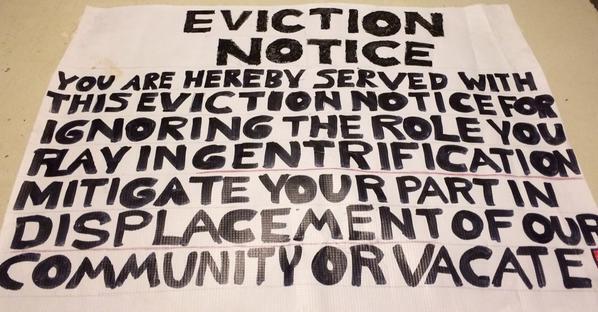 EVICTION
NOTICE
YOU ARE HEREBY SERVED WITH
THIS EVICTION NOTICE FOR
IGNORING THE ROLE YOU
PLAY IN GENTRIFICATION
MITIGATE YOUR PART IN
DISPLACEMENT OF OUR
COMMUNITY OR VACATE